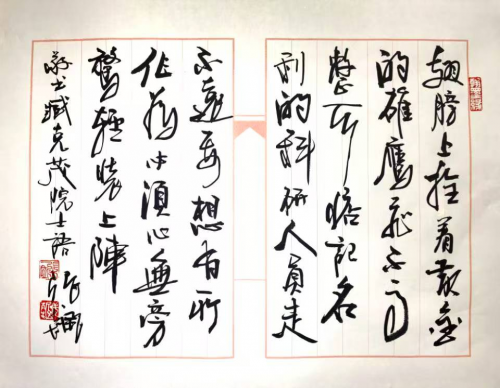 翅膀上拴着黄金
的雄鹰飞不高
整天惦记名
利的科研人员走
不远要想有所
作为必须心无旁
骛轻装上阵
书臧克茂院士语